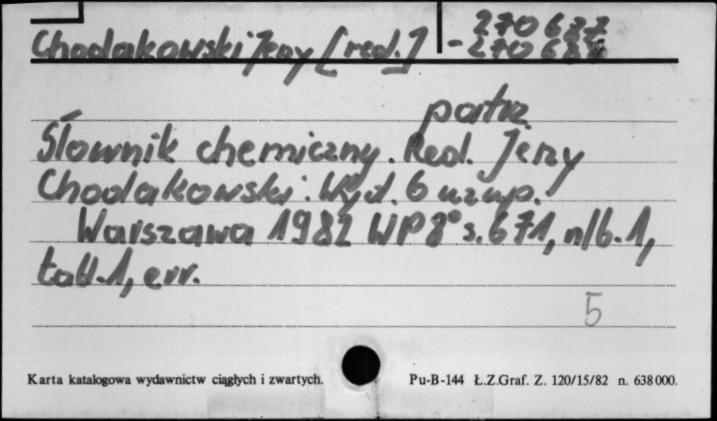 270687
Chodakowski Jerzy [red.] - 270688
patrz
Słownik chemiczny. Red. Jerzy
Chodakowski. Wyd. 6 uzup.
Warszawa 1982 WP 8° s. 671, nlb. 1,
tabl. 1, err.
5
Karta katalogowa wydawnictw ciągłych i zwartych. Pu-B-144 Ł.Z.Graf. Z. 120/15/82 n. 638000.